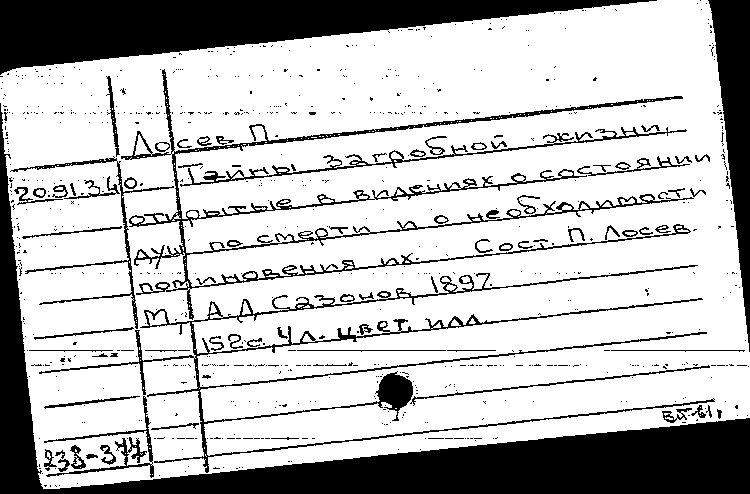 Лосев, П.
20.91.3.40. Тайны загробной жизни,
открытые в видениях, о состоянии
душ по смерти и о необходимости
поминовения их. Сост. П. Лосев.
М., А.Д. Сазонов, 1897.
158с., 4 л. цвет. илл.
238-377